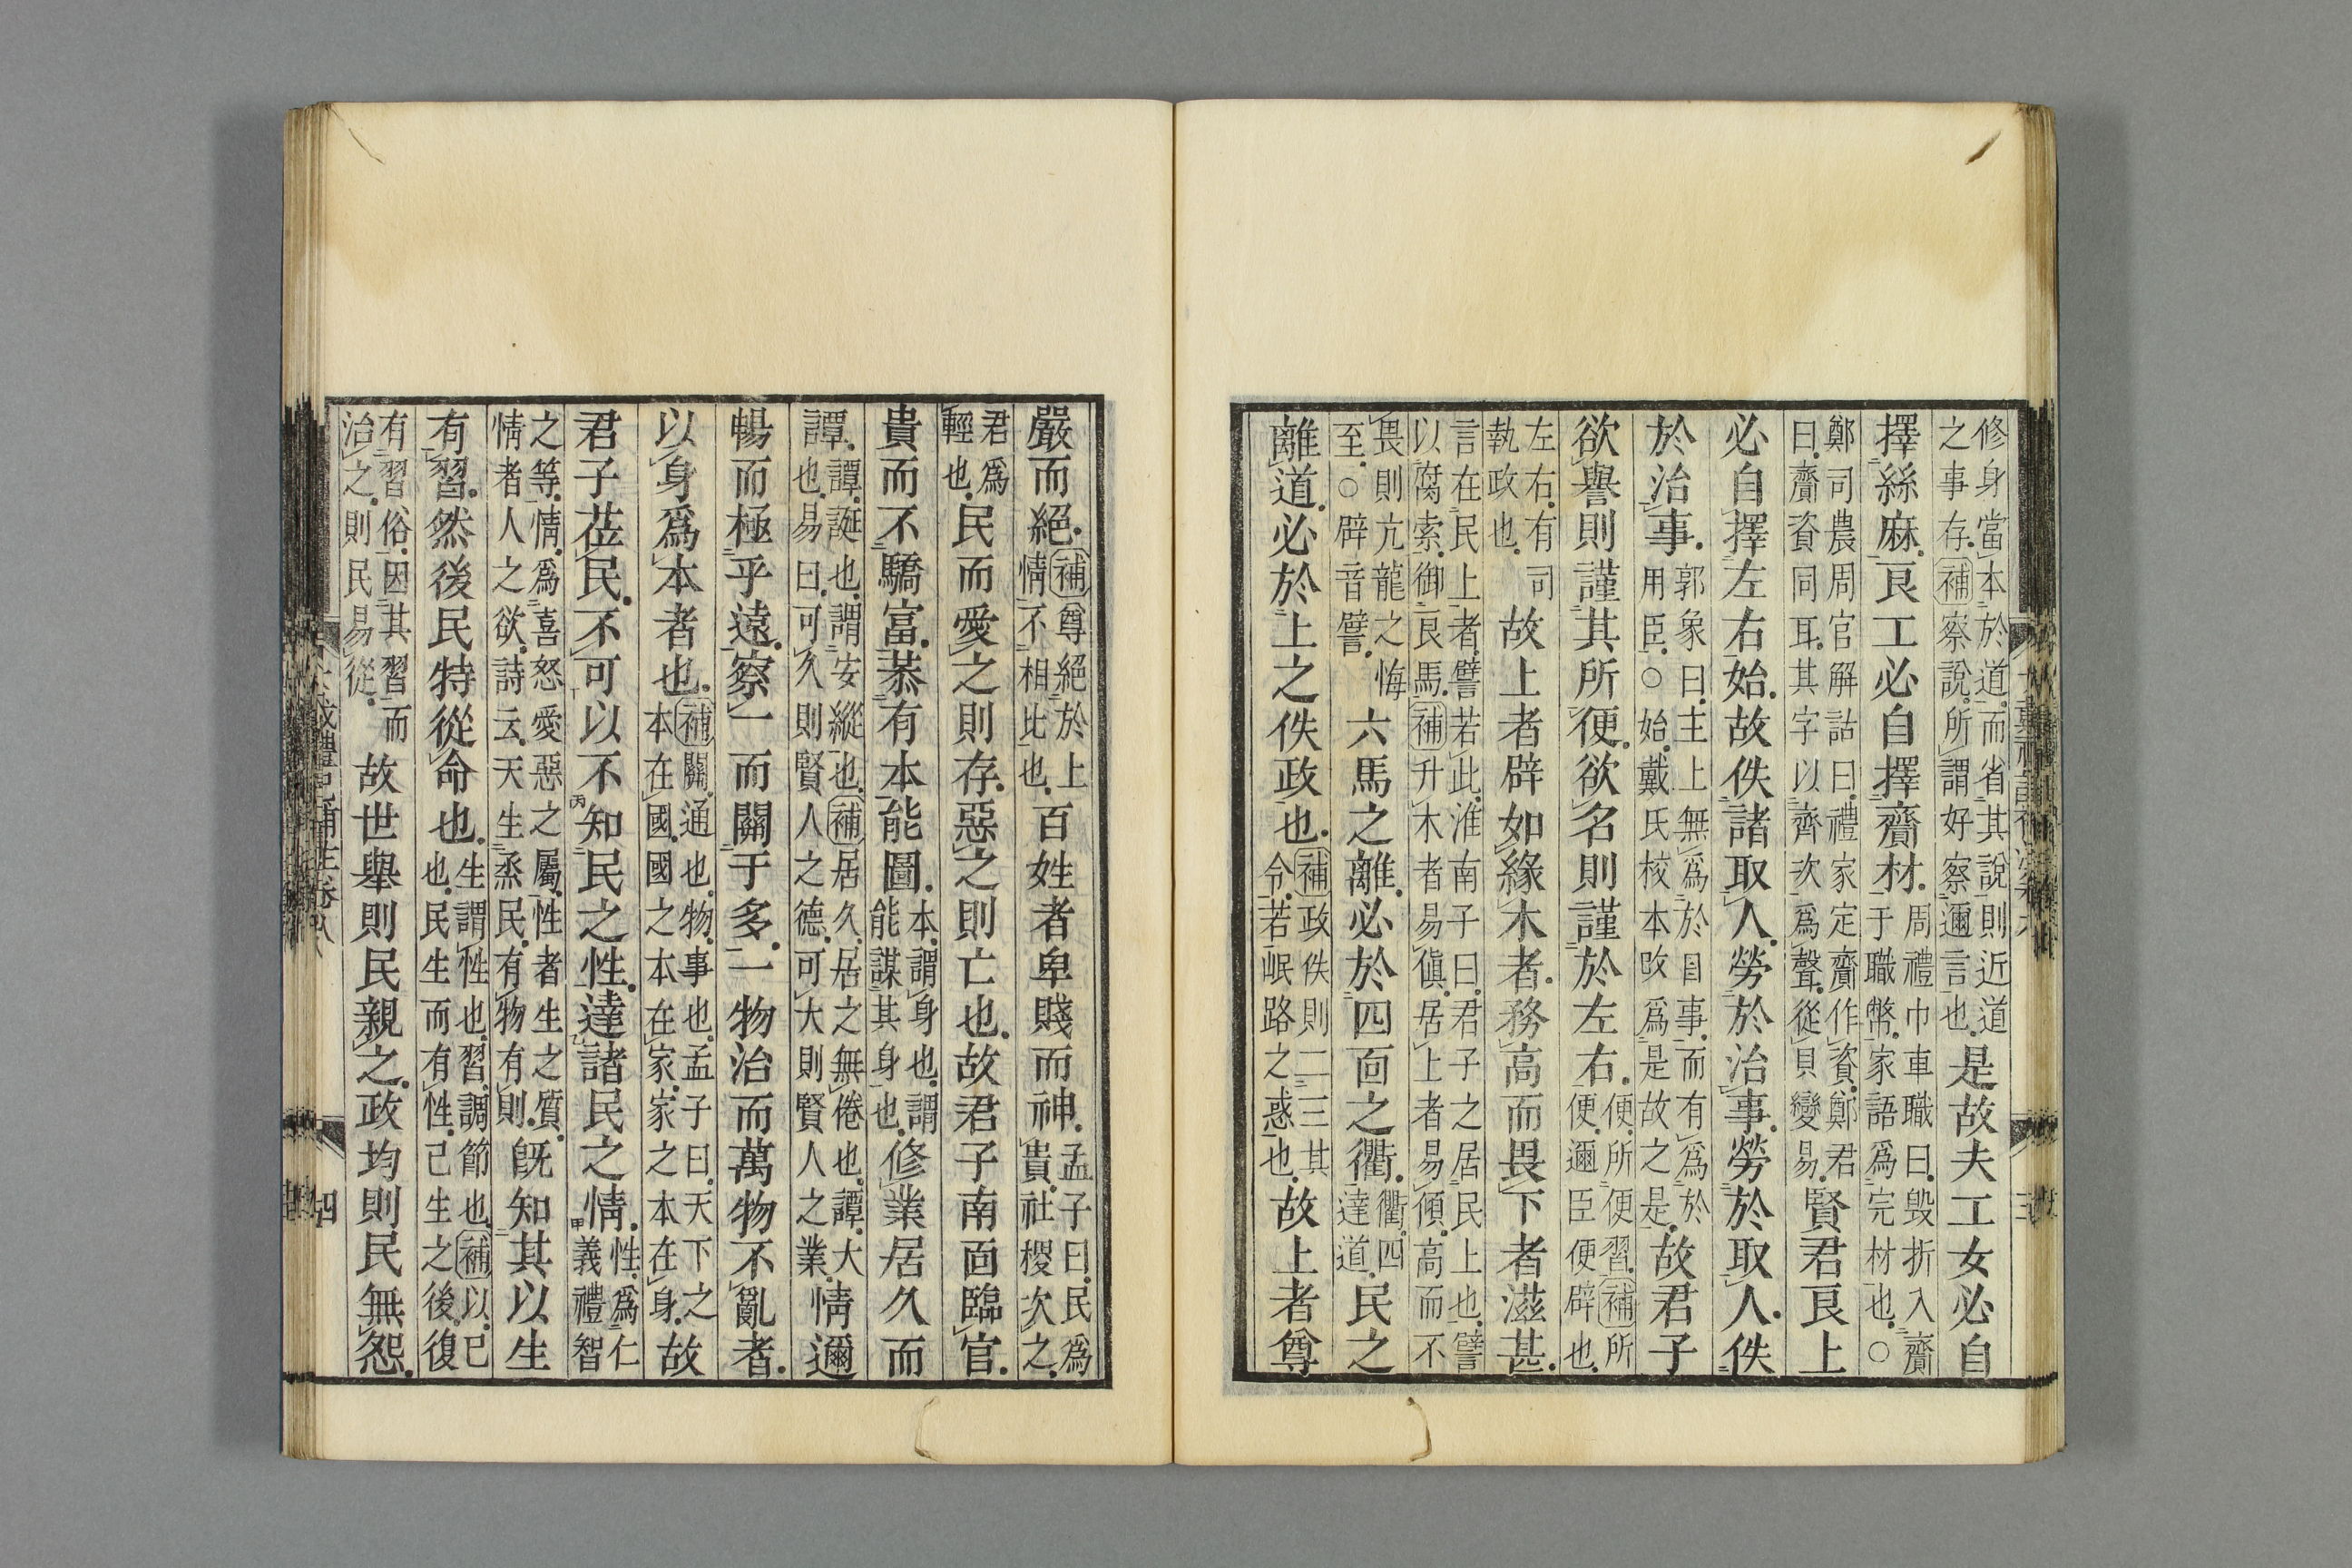 修身當本於道而省其說則近道之事存補察說所謂好察邇言也是故夫工女必自
擇絲麻良工必自擇齎材周禮巾車職曰毀折入齎于職幣家語爲完材也○
鄭司農周官解詁曰禮家定齎作資鄭君曰齎資同耳其字以齊次爲聲從貝變易賢君良上
必自擇左右始故佚諸取人勞於治事勞於取人佚
於治事郭象曰主上無爲於自事而有爲於用臣○始戴氏校本改爲是故之是故君子
欲譽則謹其所便欲名則謹於左右便所便習補所便邇臣便辟也
左右有司執政也故上者辟如緣木者務高而畏下者滋甚
言在民上者譬若此淮南子曰君子之居民上也譬以腐索御良馬補升木者易傎居上者易傾高而不
畏則亢龍之悔至○辟音譬六馬之離必於四面之衢衢四達道民之
離道必於上之佚政也補政佚則二三其令若岷路之惑也故上者尊
嚴而絕補尊絕於上情不相比也百姓者卑賤而神孟子曰民爲貴社稷次之
君爲輕也民而愛之則存惡之則亡也故君子南面臨官
貴而不驕富恭有本能圖本謂身也謂能謀其身也修業居久而
譚譚誕也謂安縱也補居久居之無倦也譚大也易曰可久則賢人之德可大則賢人之業情邇
暢而極乎遠察一而關于多一物治而萬物不亂者
以身爲本者也補關通也物事也孟子曰天下之本在國國之本在家家之本在身故
君子莅民不可以不知民之性達諸民之情性爲仁義禮智
之等情爲喜怒愛惡之屬性者生之質情者人之欲詩云天生烝民有物有則既知其以生
有習然後民特從命也生謂性也習調節也補以已也民生而有性己生之後復
有習俗因其習而治之則民易從故世舉則民親之政均則民無怨
四